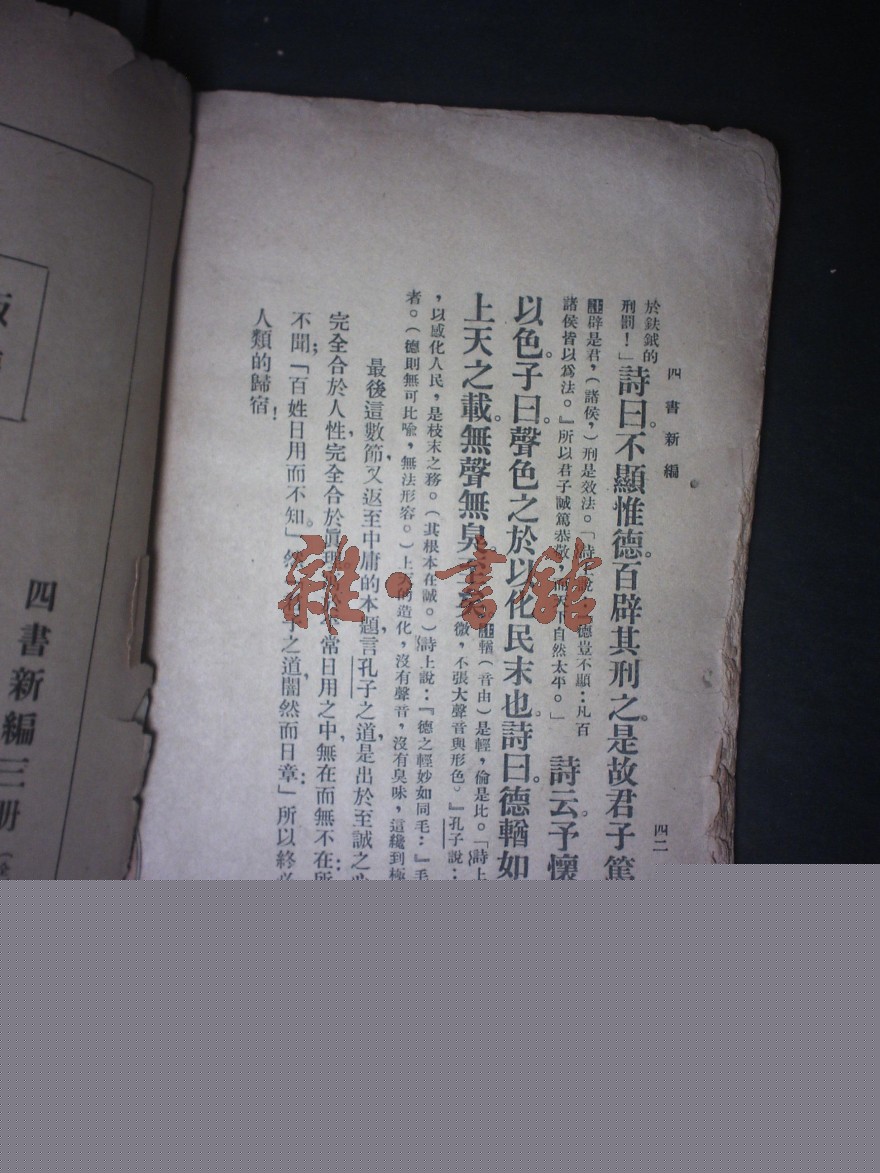 四書新編
四二
於鈇鉞的
刑罰!」詩曰不顯惟德。百辟其刑之。是故君子篤
註辟是君,(諸侯,)刑是效法。「詩上說 德豈不顯:凡百
諸侯皆以爲法。』所以君子誠篤恭敬, 自然太平。」
詩云。予懷
以色。子曰。聲色之於以化民末也。詩曰。德輶如
上天之載。無聲無臭。至矣
註輶(音由)是輕,倫是比。「詩上
微,不張大聲音與形色。』孔子說:
,以感化人民,是枝末之務。(其根本在誠。)詩上說:『德之輕妙如同毛:』毛
者。(德則無可比喩,無法形容。)上 的造化,沒有聲音,沒有臭味,這纔到極
最後這數節,又返至中庸的本題,言孔子之道,是出於至誠之
完全合於人性,完全合於眞理 常日用之中,無在而無不在:所
不聞;「百姓日用而不知。」然 之道,闇然而日章:」所以終必
人類的歸宿!
雜·書館
四書新編三册